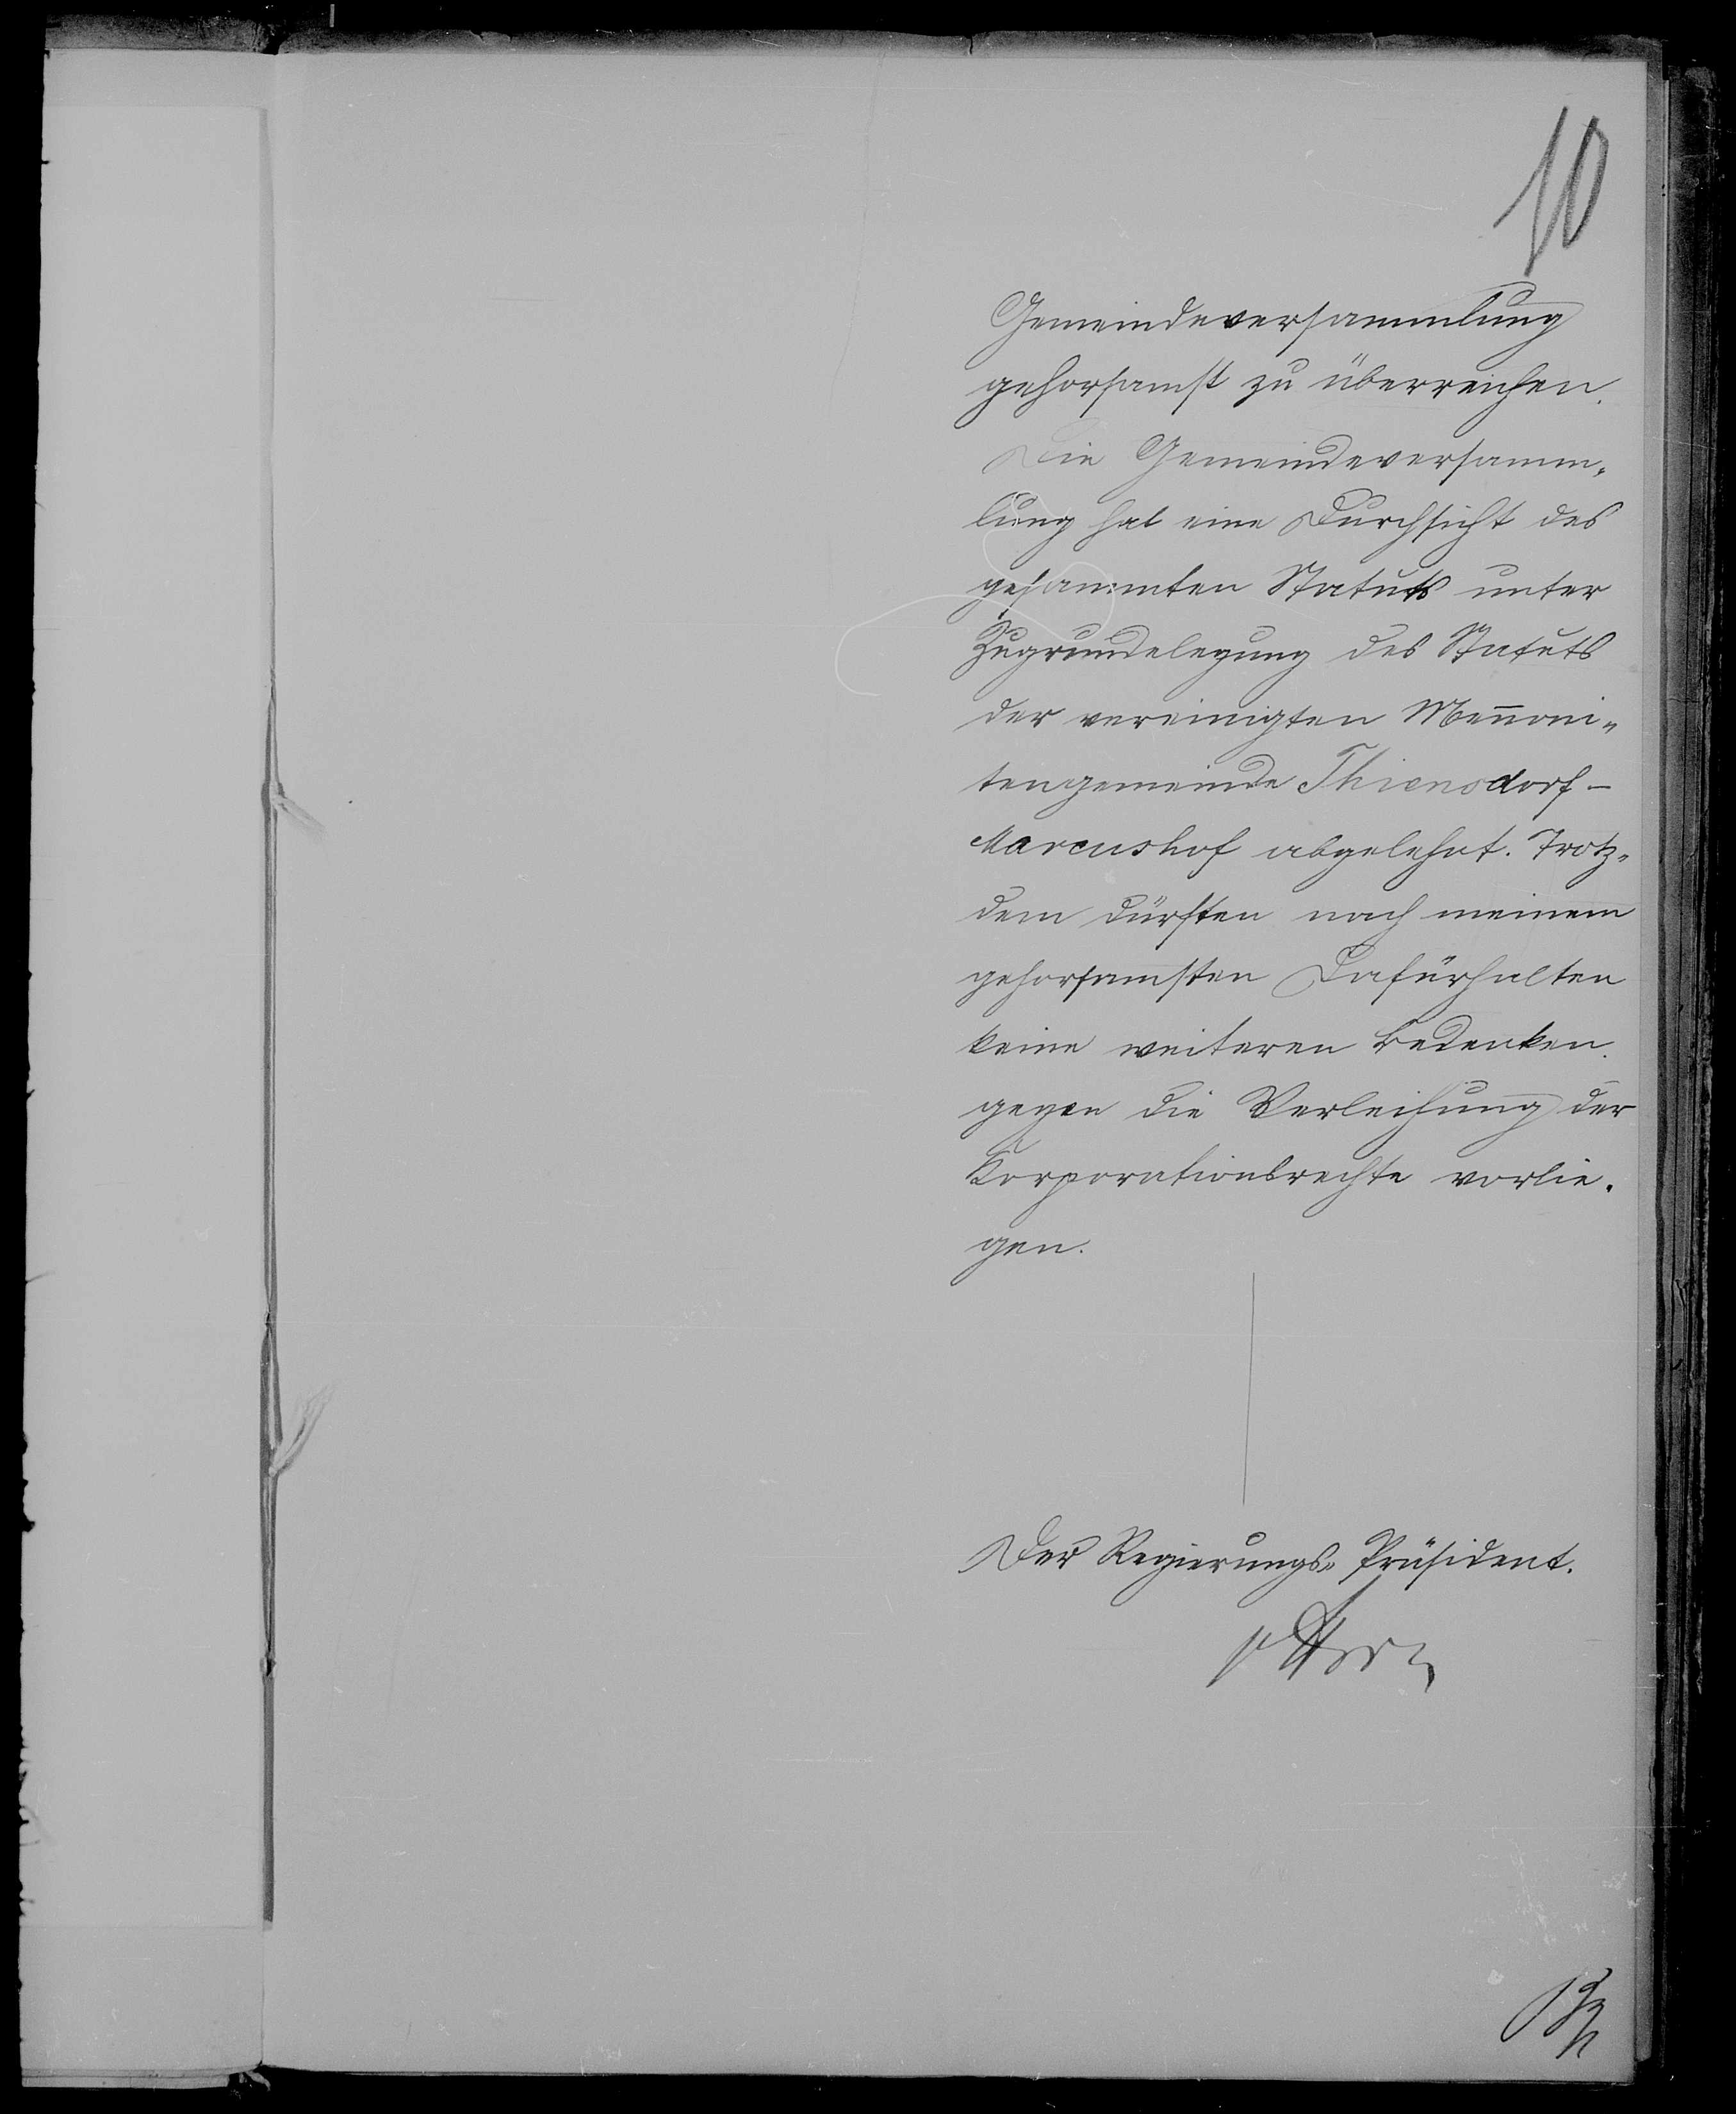 10
Gemeindeversammlung
gehorsamst zu überreichen.
Die Gemeindeversamm-
lung hat eine Durchsicht des
gesammten Statuts unter
Zugrundelegung des Statuts
der vereinigten Mennoni-
tengemeinde Thiensdorf-
Marcushof abgelehnt. Trotz-
dem dürften nach meinem
gehorsamsten Dafürhalten
keine weiteren Bedenken
gegen die Verleihung der
Korporationsrechte vorlie-
gen.
Der Regierungs-Präsident.